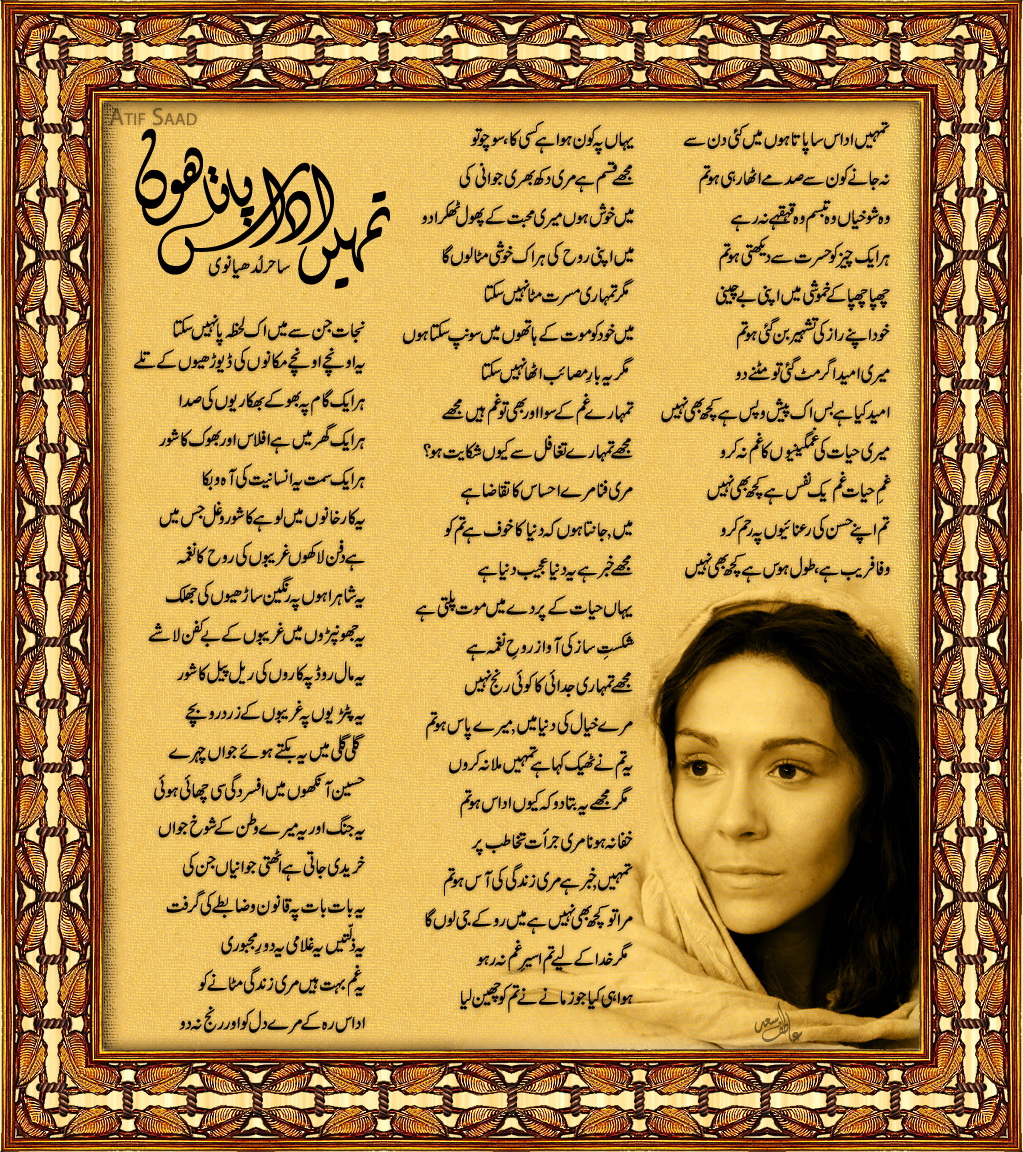 Atif Saad
تمہیں اداس پاتا ھوں
ساحر لُدھیانوی
تمہیں اداس سا پاتا ہوں میں کئی دن سے
نہ جانے کون سے صدمے اٹھا رہی ہو تم
وہ شوخیاں وہ تبسم وہ قہقہے نہ رہے
ہر ایک چیز کو حسرت سے دیکھتی ہو تم
چھپا چھپا کے خموشی میں اپنی بے چینی
خود اپنے راز کی تشہیر بن گئی ہو تم
میری امید اگر مٹ گئی تو مٹنے دو
امید کیا ہے بس اک پیش و پس ہے کچھ بھی نہیں
میری حیات کی غمگینیوں کا غم نہ کرو
غمِ حیات غم یک نفس ہے کچھ بھی نہیں
تم اپنے حسن کی رعنائیوں پہ رحم کرو
وفا فریب ہے، طول ہوس ہے کچھ بھی نہیں
یہاں پہ کون ہوا ہے کسی کا، سوچو تو
مجھے قسم ہے مری دکھ بھری جوانی کی
میں خوش ہوں میری محبت کے پھول ٹھکرا دو
میں اپنی روح کی ہر اک خوشی مٹا لوں گا
مگر تمہاری مسرت مٹا نہیں سکتا
میں خود کو موت کے ہاتھوں میں سونپ سکتا ہوں
مگر یہ بارِ مصائب اٹھا نہیں سکتا
تمہارے غم کے سوا اور بھی تو غم ہیں مجھے
مجھے تمہارے تغافل سے کیوں شکایت ہو؟
مری فنا مرے احساس کا تقاضا ہے
میں، جانتا ہوں کہ دنیا کا خوف ہے تم کو
مجھے خبر ہے یہ دنیا عجیب دنیا ہے
یہاں حیات کے پردے میں موت پلتی ہے
شکستِ ساز کی آواز روحِ نغمہ ہے
مجھے تمہاری جدائی کا کوئی رنج نہیں
مرے خیال کی دنیا میں، میرے پاس ہو تم
یہ تم نے ٹھیک کہا ہے تمہیں ملا نہ کروں
مگر مجھے یہ بتا دو کہ کیوں اداس ہو تم
خفا نہ ہونا مری جرأت تخاطب پر
تمہیں خبر ہے مری زندگی کی آس ہو تم
مرا تو کچھ بھی نہیں ہے میں رو کے جی لوں گا
مگر خدا کے لیے تم اسیرِ غم نہ رہو
ہوا ہی کیا جو زمانے نے تم کو چھین لیا
نجات جن سے میں اک لحظہ پا نہیں سکتا
یہ اونچے اونچے مکانوں کی ڈیوڑھیوں کے تلے
ہر ایک گام پہ بھوکے بھکاریوں کی صدا
ہر ایک گھر میں ہے افلاس اور بھوک کا شور
ہر ایک سمت یہ انسانیت کی آہ و بکا
یہ کارخانوں میں لوہے کا شور و غل جس میں
ہے دفن لاکھوں غریبوں کی روح کا نغمہ
یہ شاہراہوں پہ رنگین ساڑھیوں کی جھلک
یہ جھونپڑوں میں غریبوں کے بے کفن لاشے
یہ مال روڈ پہ کاروں کی ریل پیل کا شور
یہ پٹڑیوں پہ غریبوں کے زرد رو بچے
گلی گلی میں یہ بکتے ہوئے جواں چہرے
حسین آنکھوں میں افسردگی سی چھائی ہوئی
یہ جنگ اور یہ میرے وطن کے شوخ جواں
خریدی جاتی ہے اٹھتی جوانیاں جن کی
یہ بات بات پہ قانون و ضابطے کی گرفت
یہ ذلّتیں یہ غلامی یہ دورِ مجبوری
یہ غم بہت ہیں مری زندگی مٹانے کو
اداس رہ کے مرے دل کو اور رنج نہ دو
عاطف سعد